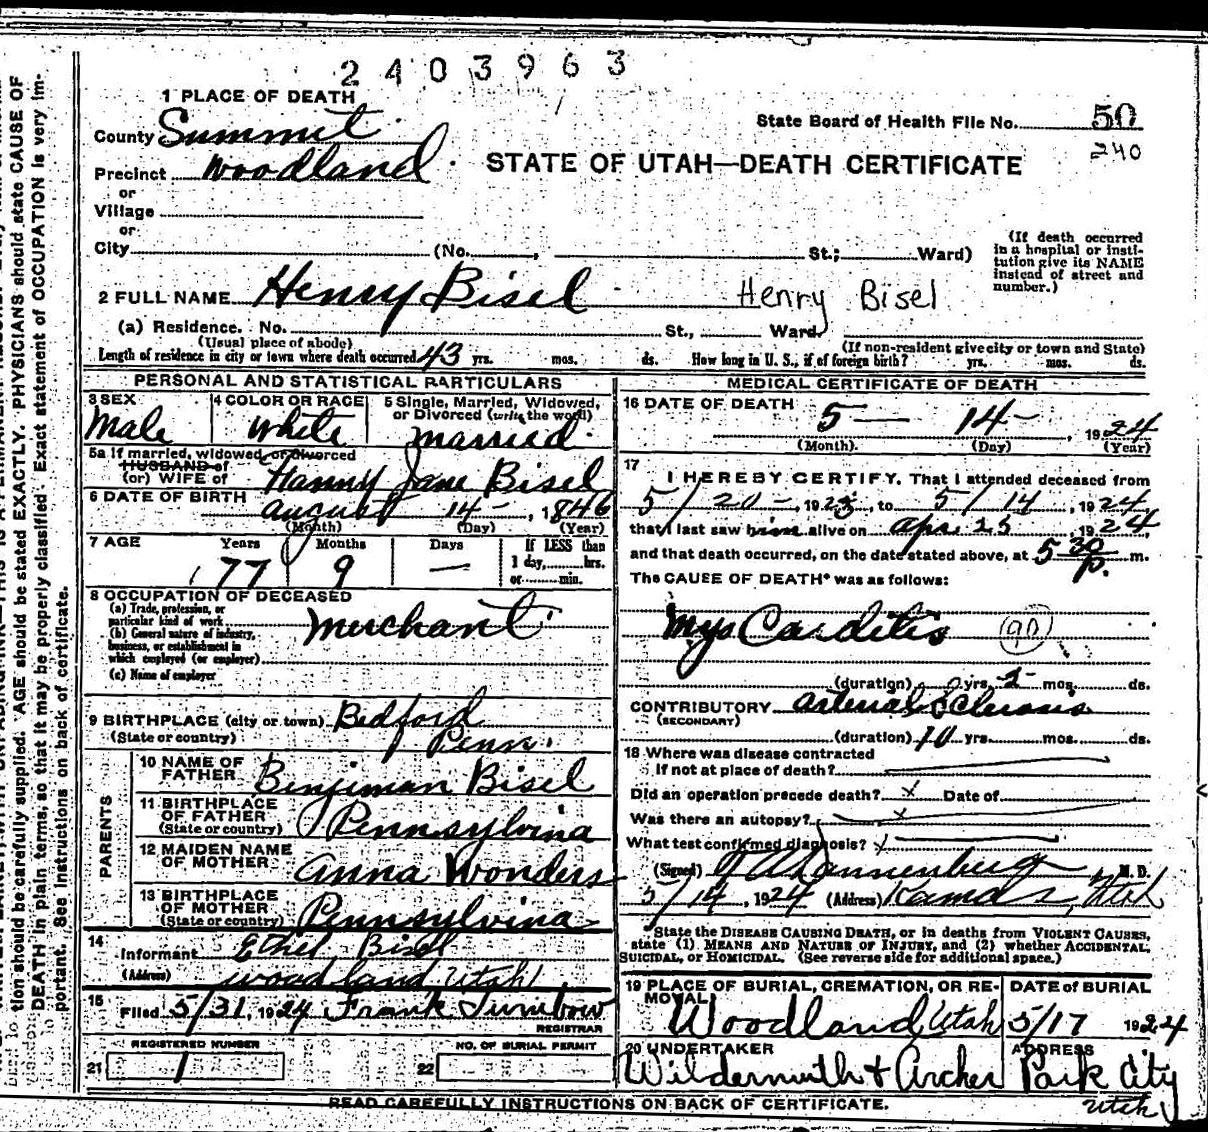 2403963
1 PLACE OF DEATH
County Summit
State Board of Health File No. 50
240
Precinct Woodland
STATE OF UTAH—DEATH CERTIFICATE
or
Village
or
City (No. , St.; Ward)
(If death occurred in a hospital or institution give its NAME instead of street and number.)
2 FULL NAME Henry Bisel Henry Bisel
(a) Residence. No. St., Ward.
(Usual place of abode) (If non-resident give city or town and State)
Length of residence in city or town where death occurred 43 yrs. mos. ds. How long in U. S., if of foreign birth? yrs. mos. ds.
PERSONAL AND STATISTICAL PARTICULARS
3 SEX 4 COLOR OR RACE 5 Single, Married, Widowed, or Divorced (write the word)
Male White married
5a If married, widowed, or divorced
HUSBAND of
(or) WIFE of Hanny Jane Bisel
6 DATE OF BIRTH
august 14 - , 1846
(Month) (Day) (Year)
7 AGE Years Months Days If LESS than
1 day, hrs.
or min.
77 9 —
8 OCCUPATION OF DECEASED
(a) Trade, profession, or
particular kind of work
(b) General nature of industry,
business, or establishment in
which employed (or employer)
(c) Name of employer
Merchant
9 BIRTHPLACE (city or town) Bedford
(State or country) Penn.
PARENTS
10 NAME OF FATHER Benjiman Bisel
11 BIRTHPLACE OF FATHER
(State or country) Pennsylvina
12 MAIDEN NAME OF MOTHER Anna Wonders
13 BIRTHPLACE OF MOTHER
(State or country) Pennsylvina
14
Informant Ethel Bisel
(Address) Woodland, Utah
15
Filed 5/31, 1924 Frank Turnbow
REGISTRAR
REGISTERED NUMBER NO. OF BURIAL PERMIT
21 1 22
MEDICAL CERTIFICATE OF DEATH
16 DATE OF DEATH
5 — 14 - , 1924
(Month). (Day) (Year)
17
I HEREBY CERTIFY, That I attended deceased from
5/20 -, 1923, to 5/14, 1924,
that I last saw him alive on Apr. 25 1924
and that death occurred, on the date stated above, at 5 30 p. m.
The CAUSE OF DEATH* was as follows:
Myo Carditis 90
(duration) yrs. 2 mos. ds.
CONTRIBUTORY arterial Sclerosis
(SECONDARY)
(duration) 10 yrs. mos. ds.
18 Where was disease contracted
If not at place of death?
Did an operation precede death? x Date of
Was there an autopsy? x
What test confirmed diagnosis? x
(Signed) M. D.
5/14, 1924 (Address) Kamas, Utah
*State the DISEASE CAUSING DEATH, or in deaths from VIOLENT CAUSES,
state (1) MEANS AND NATURE OF INJURY, and (2) whether ACCIDENTAL,
SUICIDAL, or HOMICIDAL. (See reverse side for additional space.)
19 PLACE OF BURIAL, CREMATION, OR REMOVAL DATE of BURIAL
Woodland Utah 5/17 1924
20 UNDERTAKER ADDRESS
Wildermuth & Archer Park City
Utah
READ CAREFULLY INSTRUCTIONS ON BACK OF CERTIFICATE.
tion should be carefully supplied. AGE should be stated EXACTLY. PHYSICIANS should state CAUSE OF
DEATH in plain terms, so that it may be properly classified. Exact statement of OCCUPATION is very im-
portant. See instructions on back of certificate.